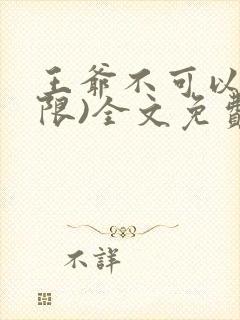 王爺不可以
限)全文免費
不詳